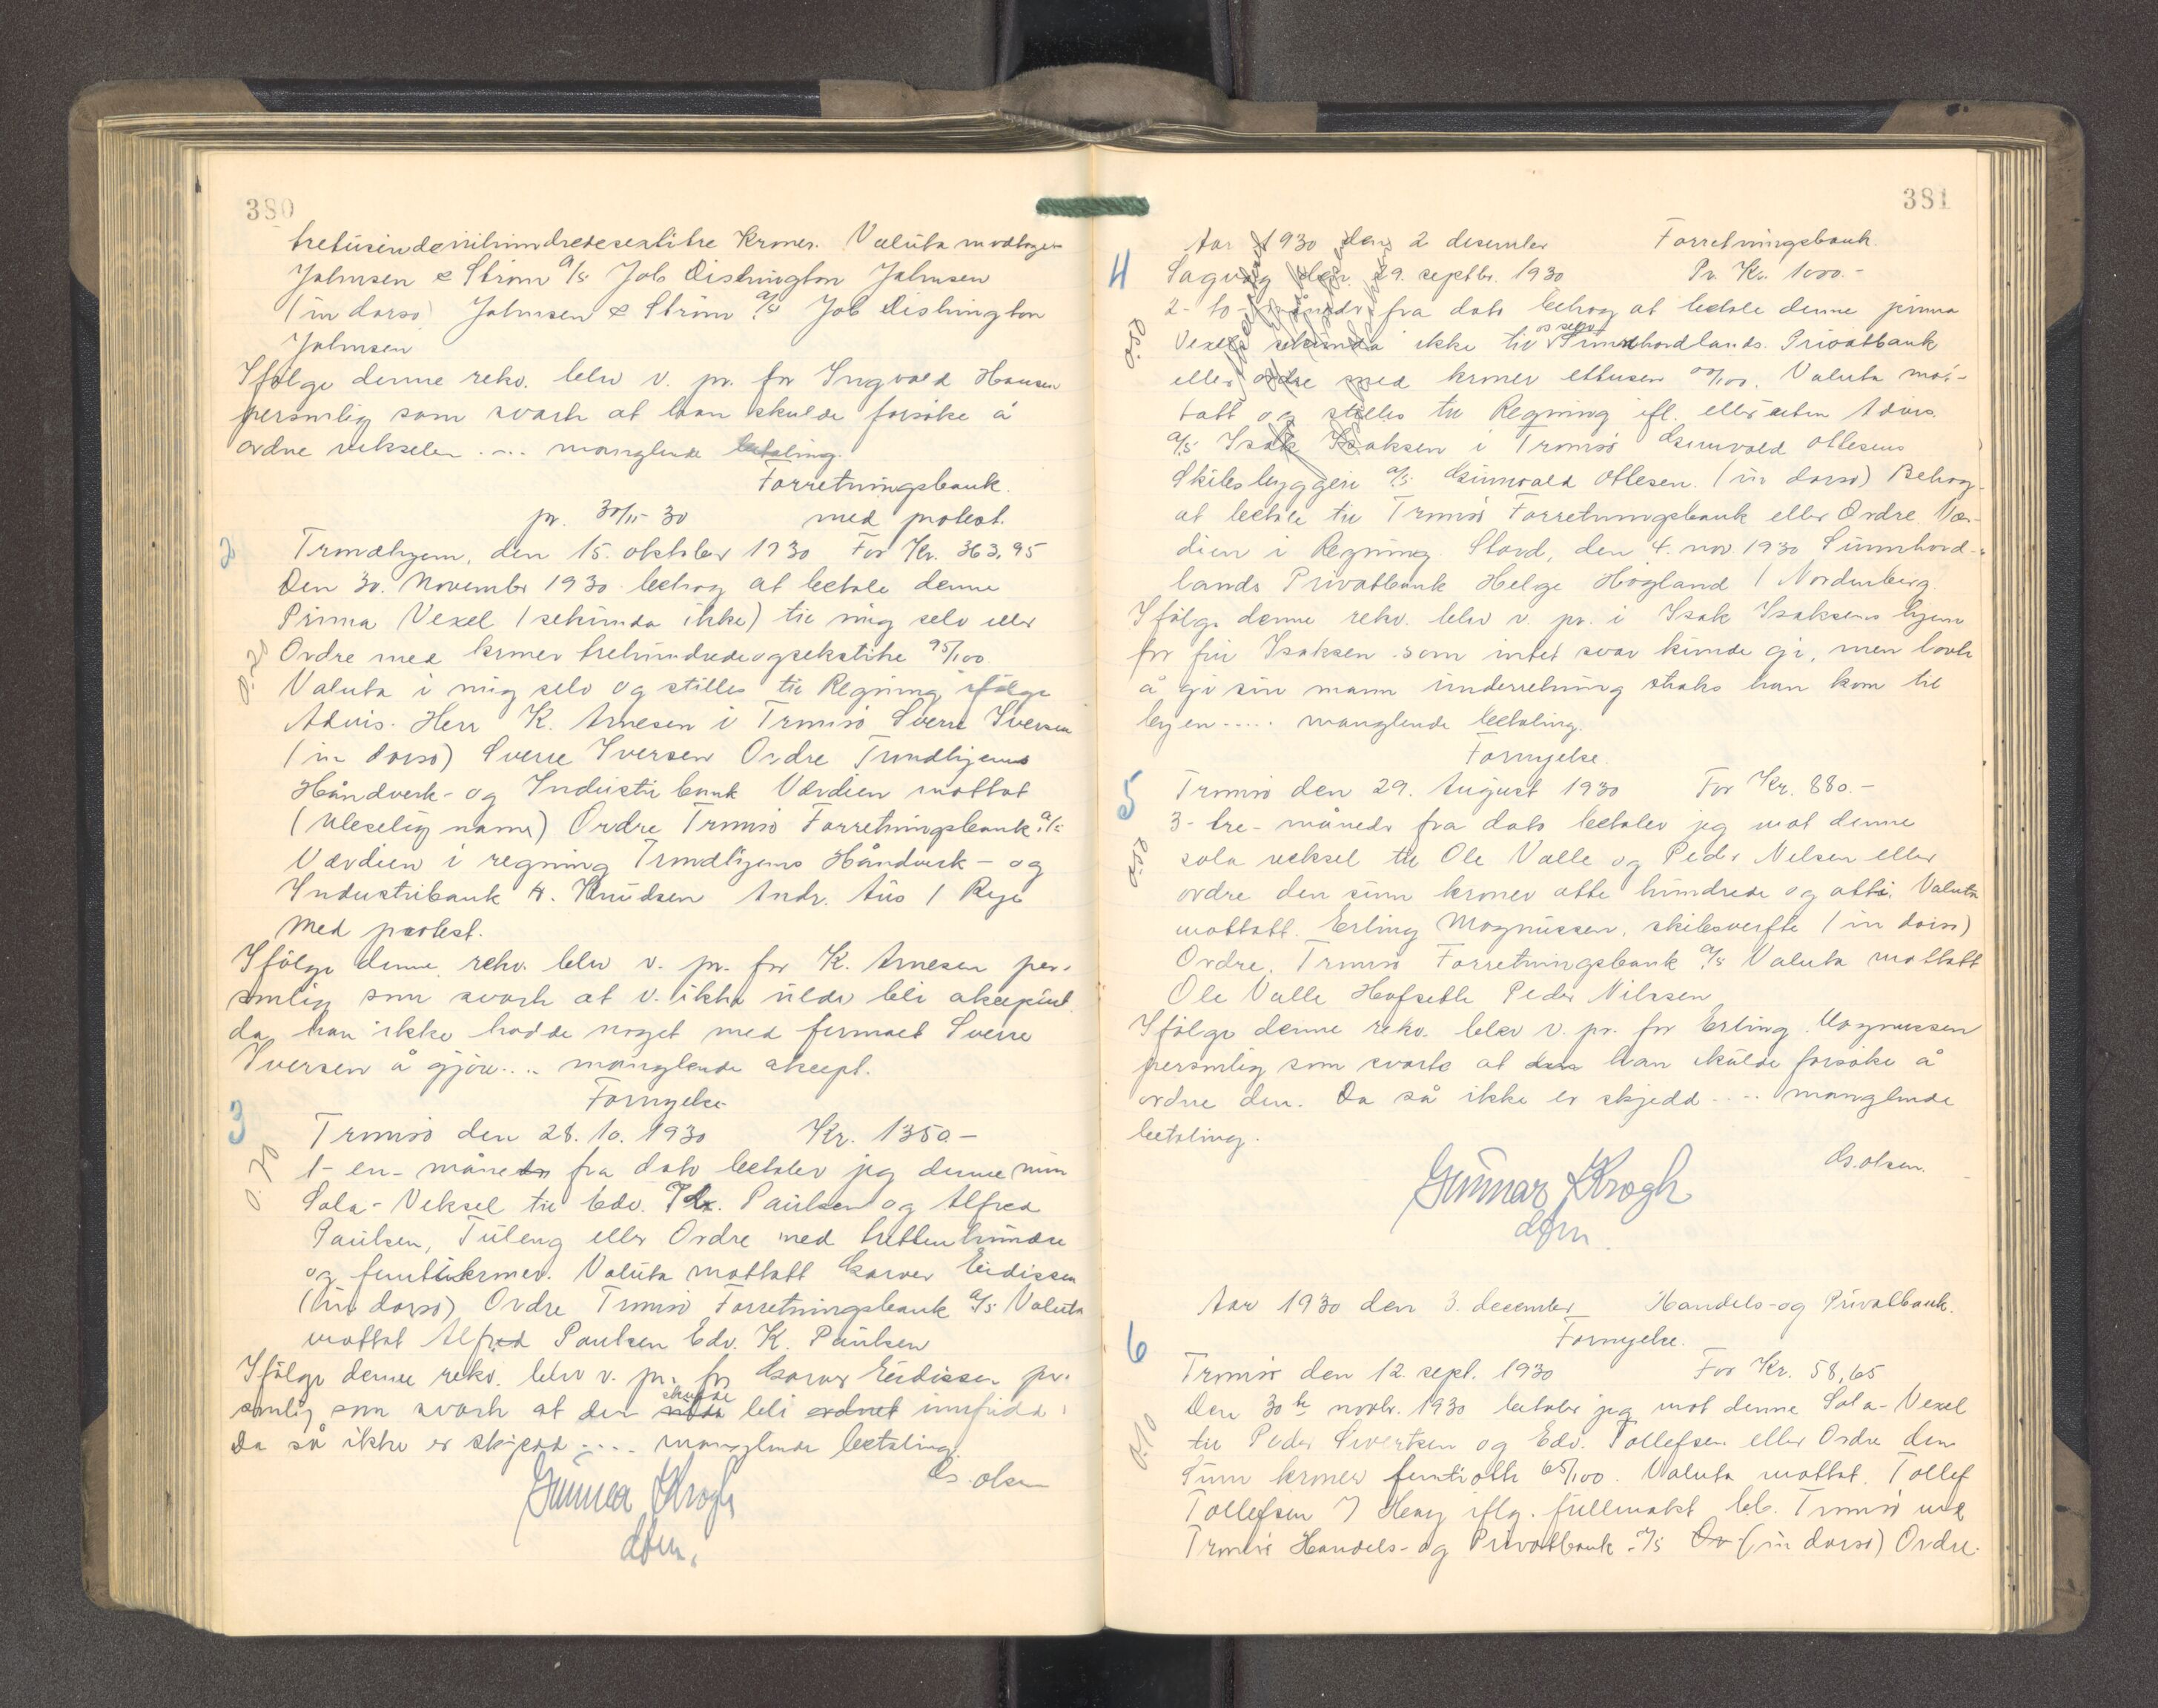 380
tretusindenihundredesextitre Kroner. Valuta modtagen
Johnsen & Ström A/S Job Dishington Johnsen
(in dorso) Johnsen & Ström A/S Job Dishington
Johnsen
Ifölge denne rekv. blev v. pr. for Ingvald Hansen
personlig som svarte at han skulde forsöke å
ordne vekselen .... manglende betaling.
Forretningsbank.
pr. 30/11-30 med protest.
2 Trondhjem, den 15. oktober 1930 For Kr. 363,95
Den 30. November 1930 behag at betale denne
Prima Vexel (sekunda ikke) til mig selv eller
0.20 Ordre med kroner trehundredeogsekstitre 95/100
Valuta i mig selv og stilles til Regning ifölge
Advis. Herr K. Arnesen i Tromsö Sverre Iversen
(in dorso) Sverre Iversen Ordre Trondhjems
Håndverk- og Industribank Værdien mottat
(Uleselig navn) Ordre Tromsö Forretningsbank A/S
Værdien i regning Trondhjems Håndverk- og
Industribank H. Knudsen Andr. Aus / Rye
med protest.
Ifölge denne rekv. blev v. pr. for K. Arnesen per-
sonlig som svarte at v. ikke vilde bli akseptert
da han ikke hadde noget med firmaet Sverre
Iversen å gjöre .... manglende aksept.
Fornyelse
3 Tromsö den 28. 10. 1930 Kr. 1350.-
0.70 1- en- måneder fra dato betaler jeg denne min
Sola-Veksel til Edv. Paulsen og Alfred
Paulsen, Tuleng eller Ordre med trettenhundre
og femtikroner. Valuta mottatt Eidissen
(in dorso) Ordre Tromsö Forretningsbank A/S Valuta
mottat Alfred Paulsen Edv. K. Paulsen
Ifölge denne rekv. blev v. pr. for Eidissen per-
sonlig som svarte at den vilde skulde bli ordnet innfridd.
Da så ikke er skjedd .... manglende betaling.
Gunnar Krogh
dfm.
Os. Olsen
381
Aar 1930 den 2 desember Forretningsbank.
4 Sagvåg den 29. septbr. 1930 Pr. Kr. 1000.-
2- to- måneder fra dato behag at betale denne prima
0.50 Vexel sekunda ikke til os selv Sunnhordlands Privatbank
eller ordre med kroner ettusen 00/100. Valuta mot-
tatt og stilles til Regning ifl. eller uten Advis.
A/S Isak Isaksen i Tromsö Gunvald Ottesens
Skibsbyggeri A/S Gunvald Ottesen. (in dorso) Behag
at betale til Tromsö Forretningsbank eller Ordre. Vær-
dien i Regning. Stord, den 4. nov. 1930 Sunnhord-
lands Privatbank Helge Högland / Nordenberg.
Ifölge denne rekv. blev v. pr. i Isak Isaksens hjem
for fru Isaksen som intet svar kunde gi, men lovte
å gi sin mann underretning straks han kom til
byen ..... manglende betaling.
Fornyelse.
5 Tromsö den 29. August 1930 For Kr. 880.-
3- tre- måneder fra dato betaler jeg mot denne
0.50 sola veksel til Ole Valle og Peder Nelsen eller
ordre den sum kroner otte hundrede og otti. Valuta
mottatt. Erling Magnussen, skibsverfte (in dorso)
Ordre. Tromsö Forretningsbank A/S Valuta mottatt
Ole Valle Hofseth Peder Nilssen
Ifölge denne rekv. blev v. pr. for Erling Magnussen
personlig som svarte at den han skulde forsöke å
ordne den. Da så ikke er skjedd .... manglende
betaling.
Os. Olsen.
Gunnar Krogh
dfm.
Aar 1930 den 3. december Handels- og Privatbank.
Fornyelse.
6 Tromsö den 12. sept. 1930 For Kr. 58,65
Den 30te novbr. 1930 betaler jeg mot denne Sola-Vexel
0.10 til Peder Sivertsen og Edv. Tollefsen eller Ordre den
Sum kroner femtiotte 65/100. Valuta mottat. Tollef
Tollefsen iflg. fullmakt Tromsö ved
Tromsö Handels- og Privatbank A/S Or (in dorso) Ordre